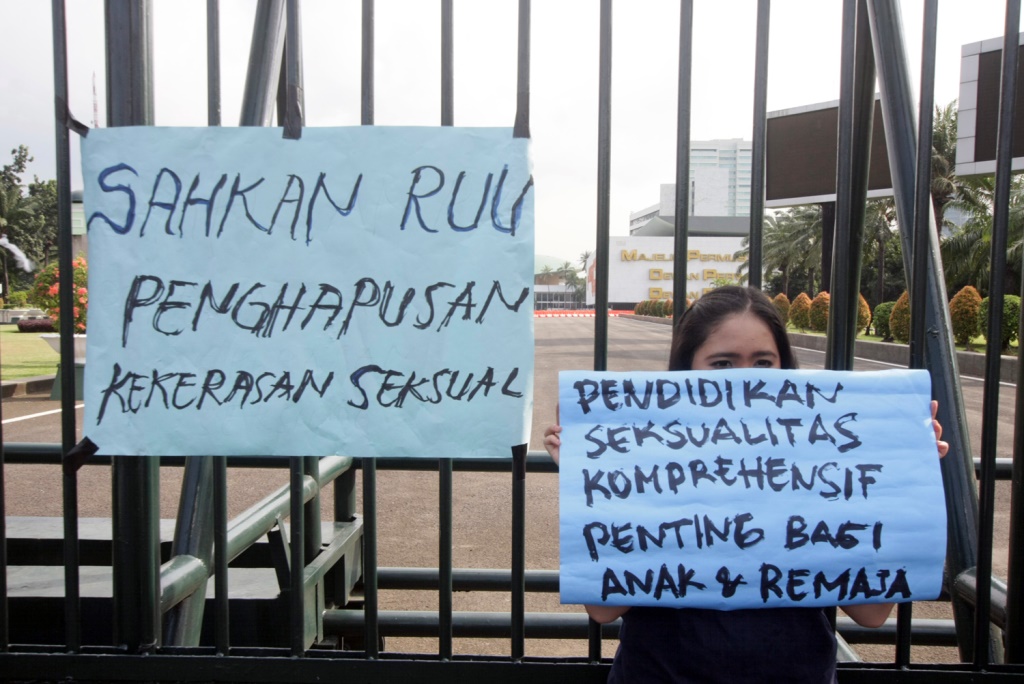 SAHKAN RUU
PENGHAPUSAN
KEKERASAN SEKSUAL
MAJELIS PERMU
DEWAN PER
PENDIDIKAN
SEKSUALITAS
KOMPREHENSIF
PENTING BAGI
ANAK & REMAJA